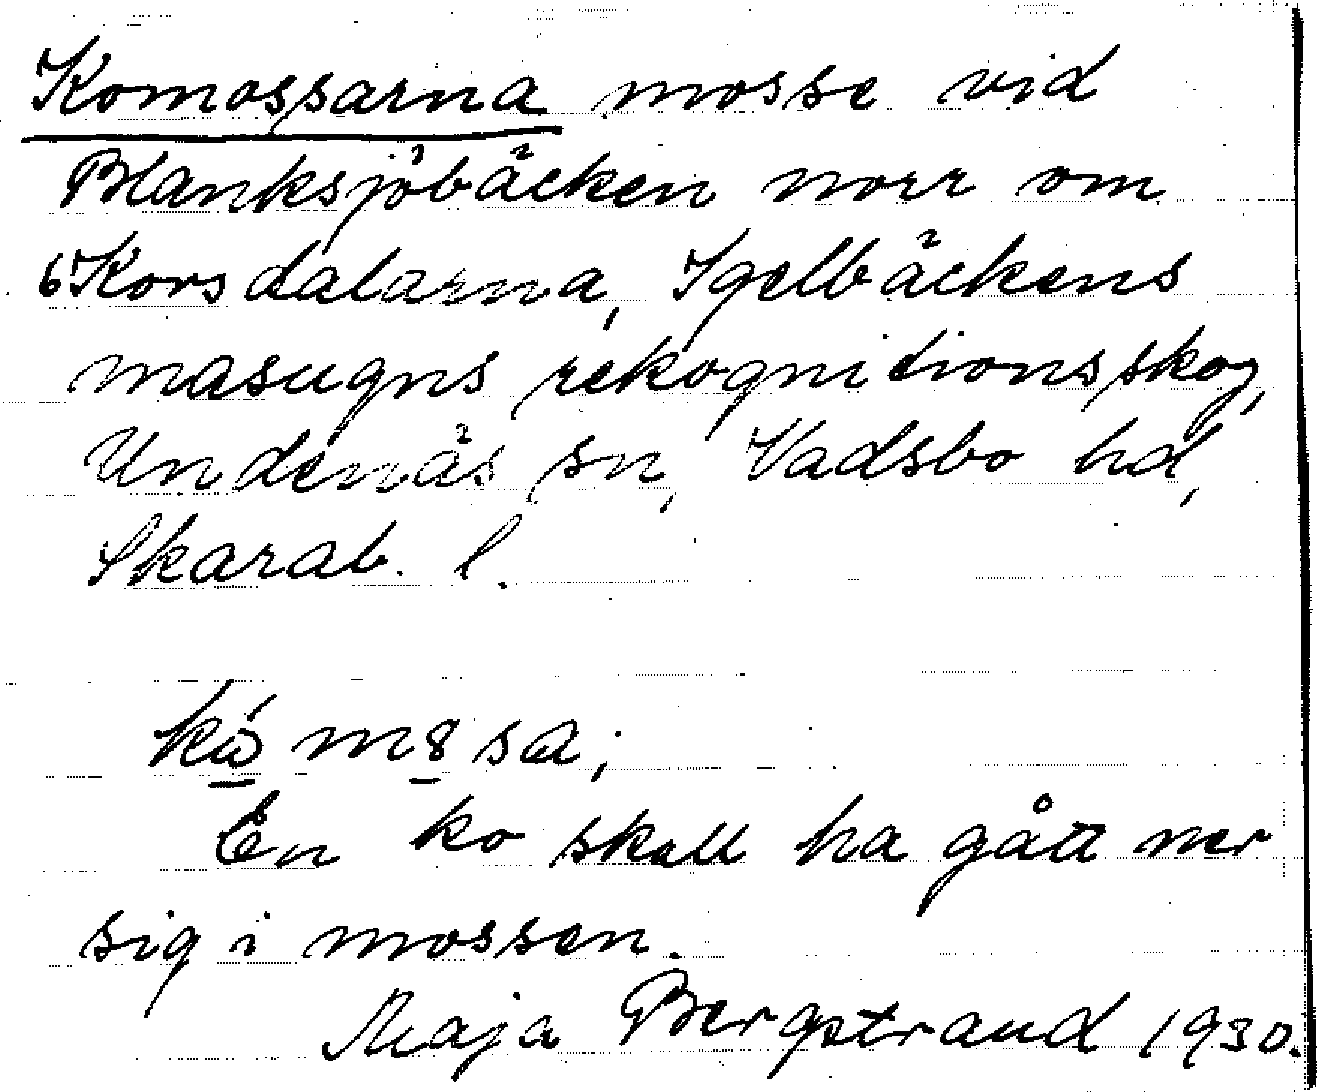 Komossarna mosse vid
Blanksjöbäcken norr om
6 Korsdalarna, Igelbäckens
masugns rekognitionsskog,
Undenäs sn, Vadsbo hd,
Skarab. l.
en ko skall ha gått ner
sig i mossen.
Maja Bergstrand 1930.